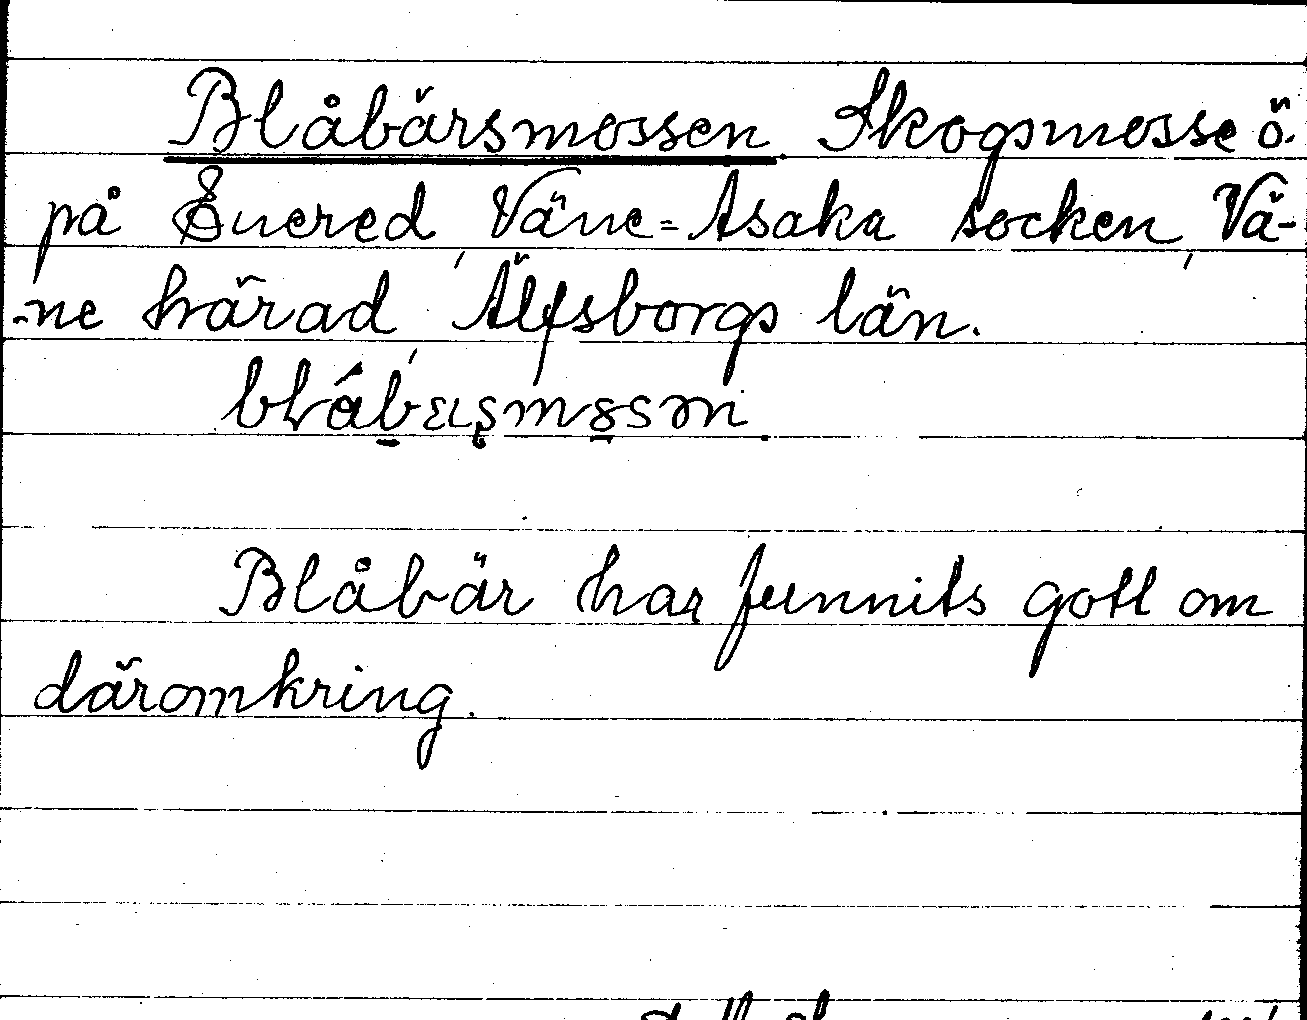 Blåbärsmossen. Skogsmosse ö.
på Enered, Väne-Åsaka socken, Vä-
-ne härad, Älfsborgs län.
Blåbär har funnits gott om
däromkring.